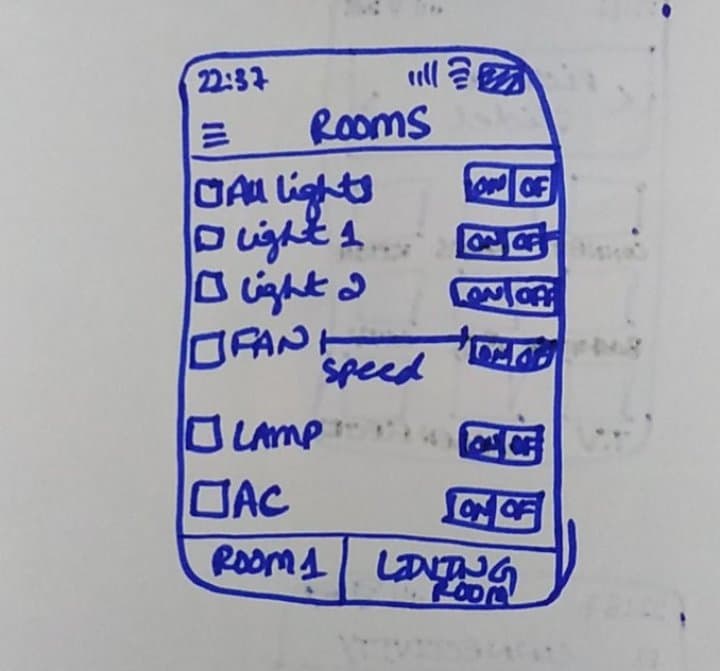 22:37
ROOMS
All lights ON OF
light 1 ON OFF
light 2 ON OFF
FAN speed ON OF
LAMP ON OF
AC ON OF
ROOM 1 LIVING ROOM